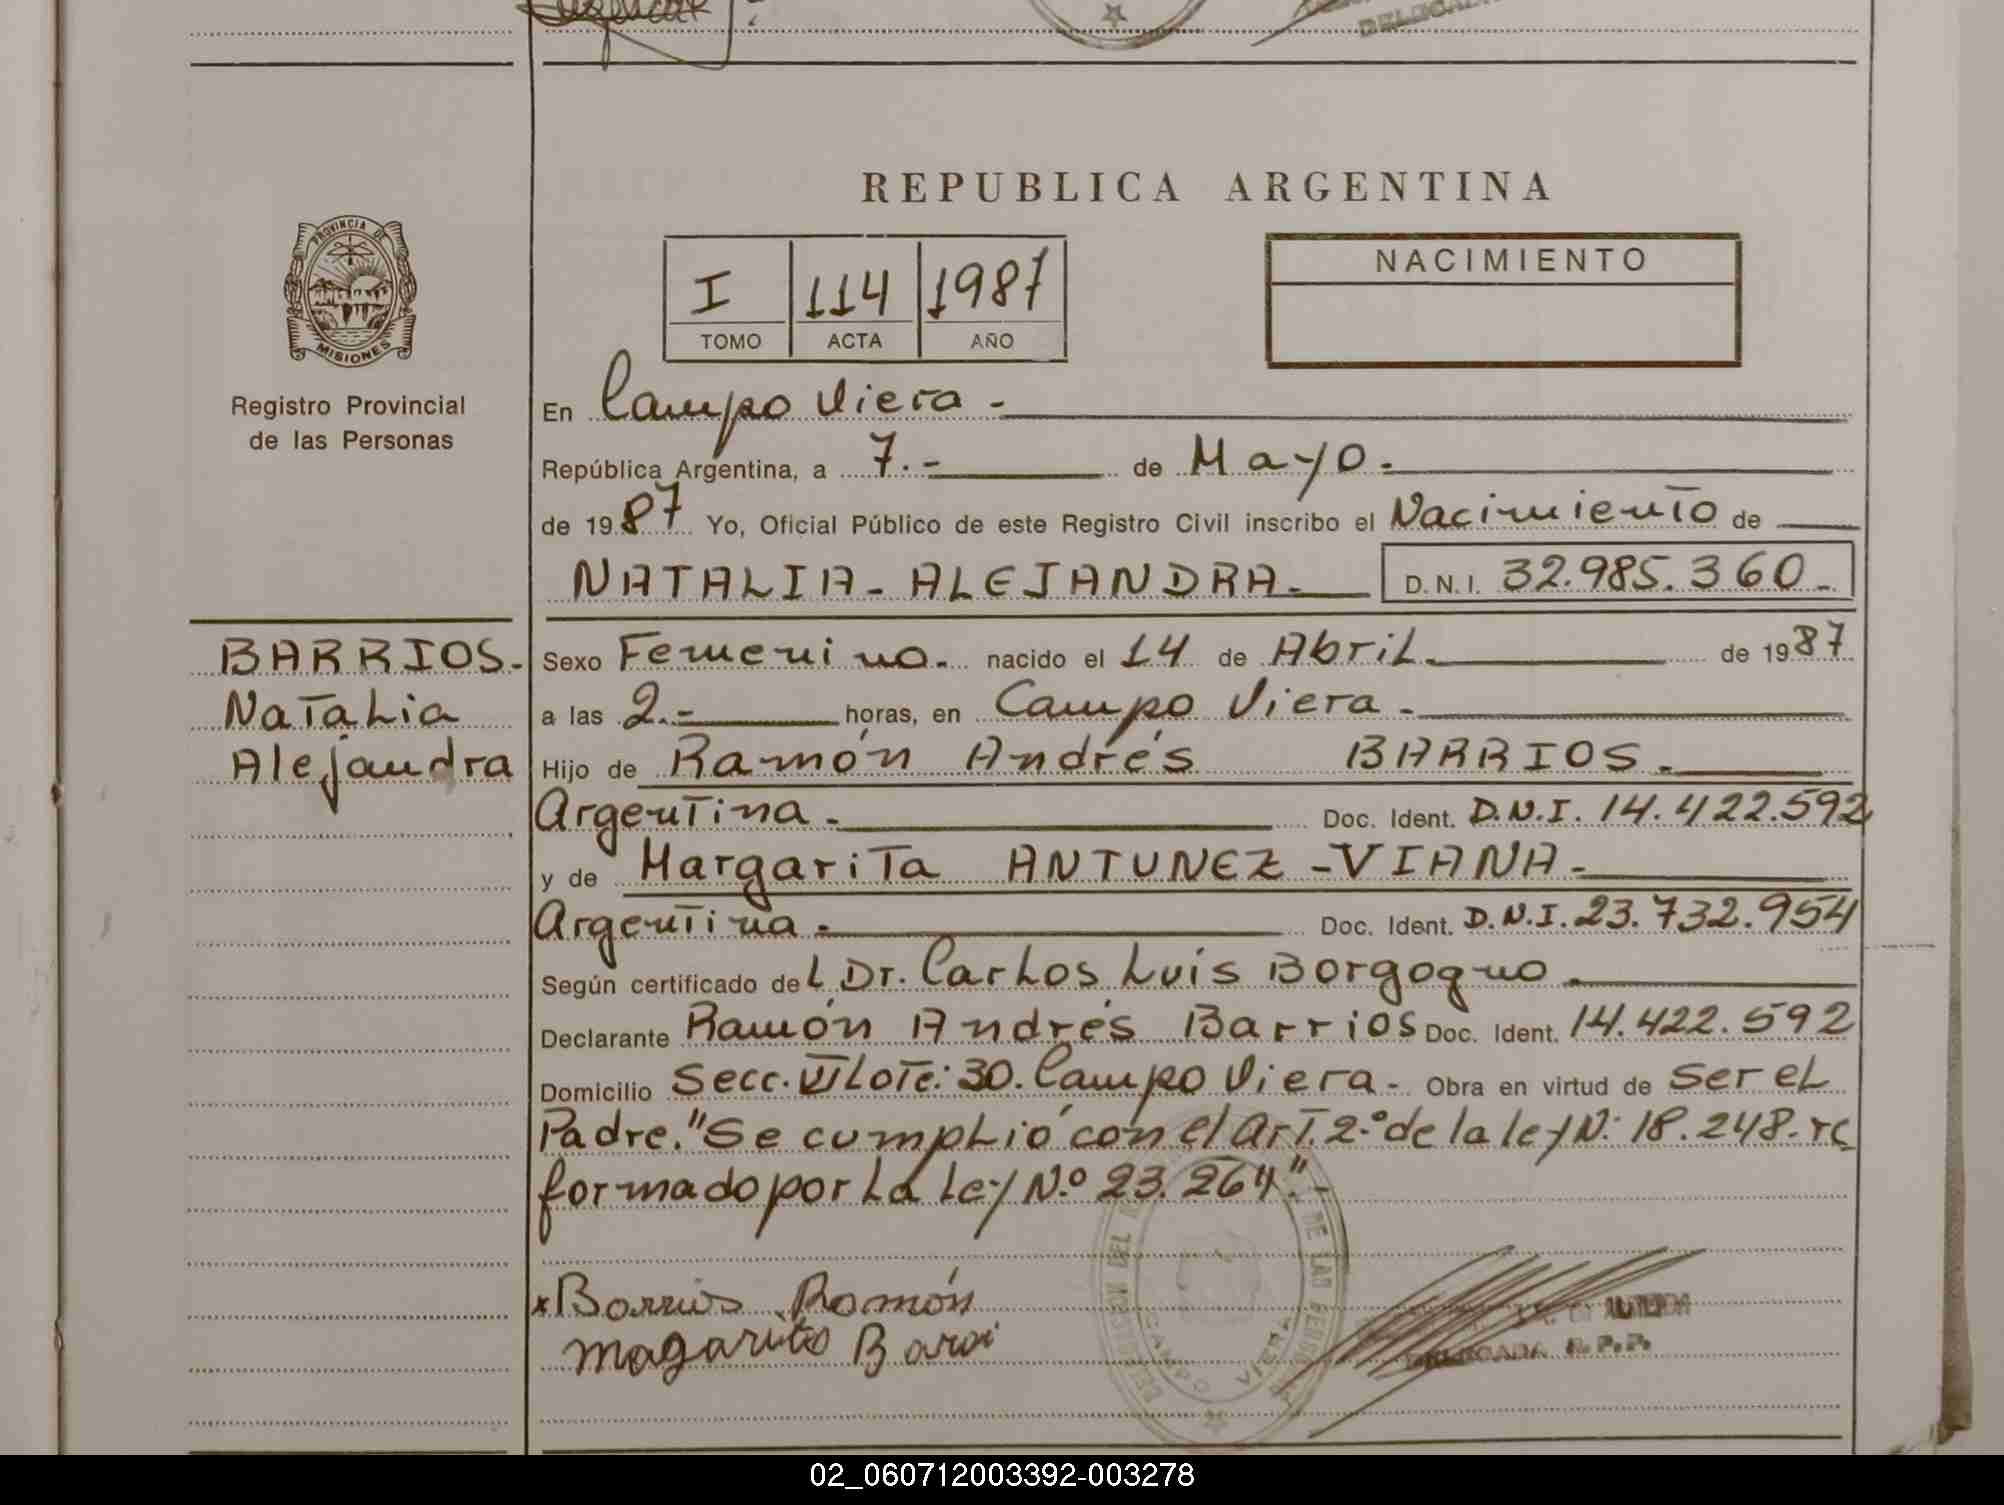 REPUBLICA ARGENTINA
PROVINCIA DE
MISIONES
Registro Provincial
de las Personas
I 114 1987
TOMO ACTA AÑO
NACIMIENTO
En Campo Viera.-
República Argentina, a 7.- de Mayo.-
de 1987 Yo, Oficial Público de este Registro Civil inscribo el Nacimiento de
NATALIA-ALEJANDRA.- D.N.I. 32.985.360-
BARRIOS.-
Natalia
Alejandra
Sexo Femenino.- nacido el 14 de Abril.- de 1987
a las 2.- horas, en Campo Viera.-
Hijo de Ramón Andrés BARRIOS.-
Argentina.- Doc. Ident. D.N.I. 14.422.592
y de Margarita ANTUNEZ-VIANA-
Argentina.- Doc. Ident. D.N.I. 23.732.954
Según certificado del Dr. Carlos Luis Borgogno.-
Declarante Ramón Andrés Barrios Doc. Ident. 14.422.592
Domicilio Secc. VI Lote: 30. Campo Viera.- Obra en virtud de ser el
Padre. "Se cumplió con el Art. 2.º de la ley N: 18.248. re
formado por la Ley N.º 23.264".-
x Barrios Ramón
Magarita
DE LAS
CAMPO VIERA
DELEGADA R.P.P.
02_060712003392-003278